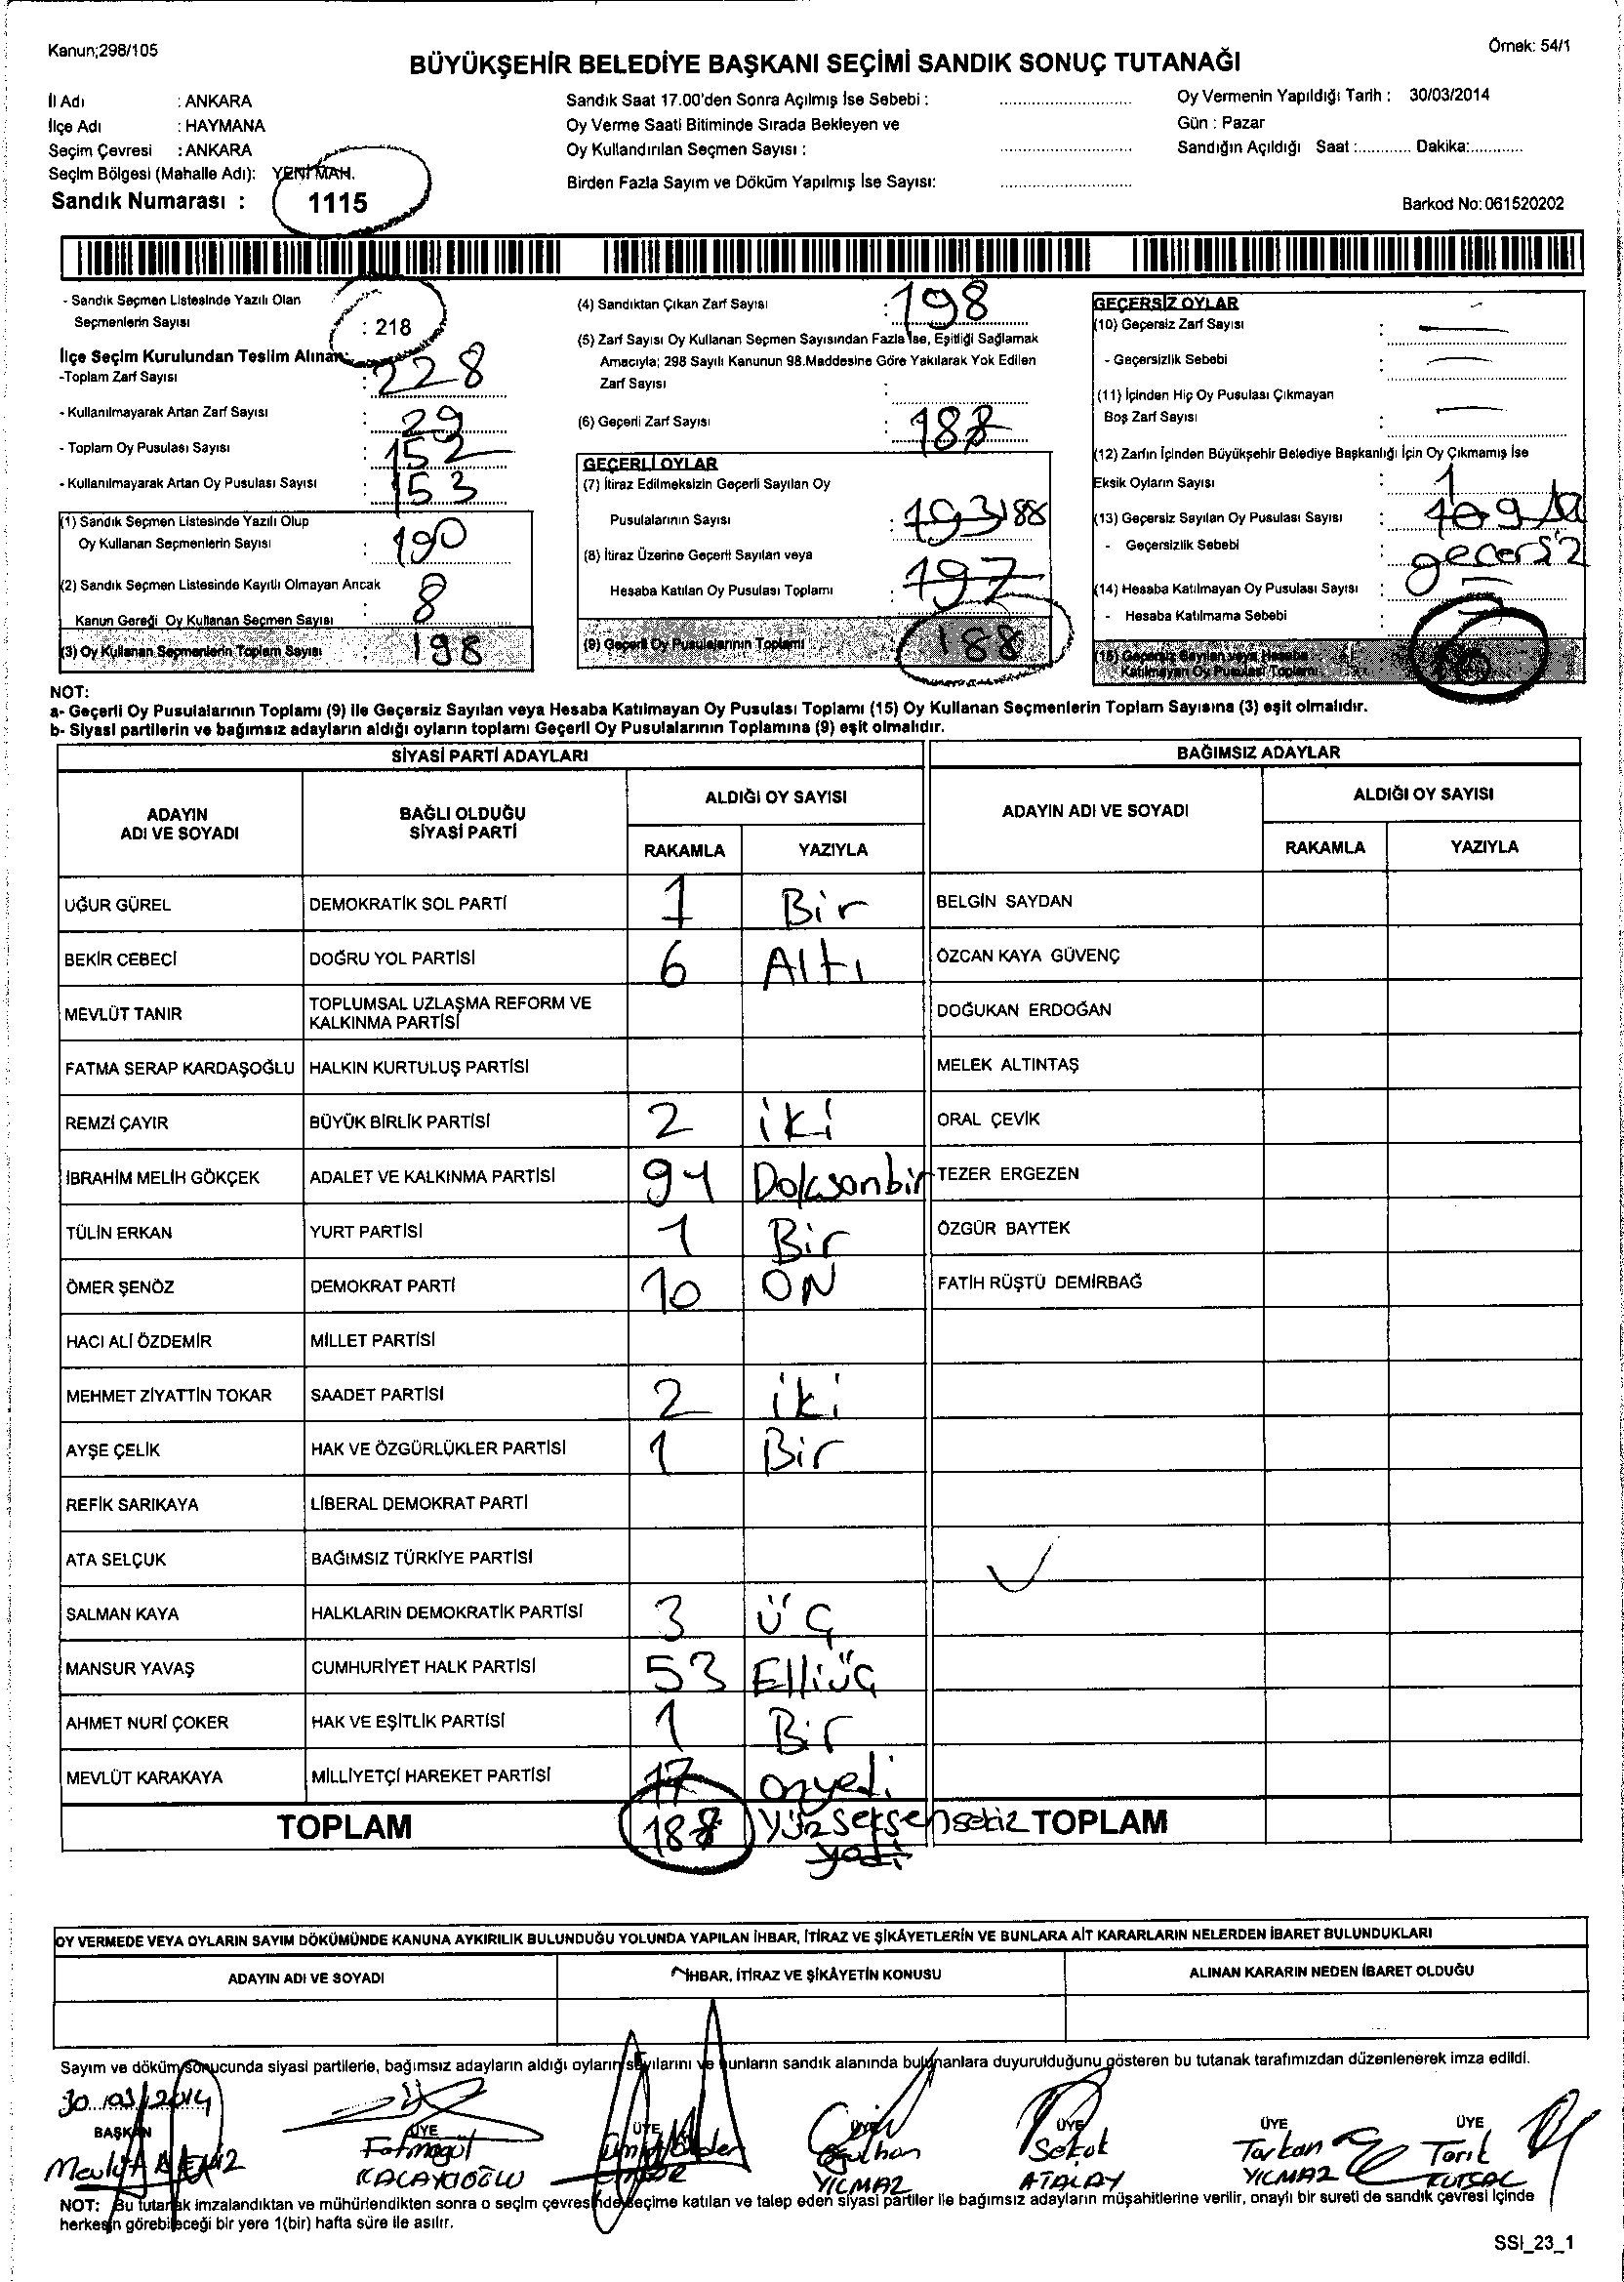 Kanun;298/105
Örnek: 54/1
BÜYÜKŞEHİR BELEDİYE BAŞKANI SEÇİMİ SANDIK SONUÇ TUTANAĞI
İl Adı : ANKARA
İlçe Adı : HAYMANA
Seçim Çevresi : ANKARA
Seçim Bölgesi (Mahalle Adı): YENİ MAH.
Sandık Numarası : 1115
Sandık Saat 17.00'den Sonra Açılmış İse Sebebi :
Oy Verme Saati Bitiminde Sırada Bekleyen ve
Oy Kullandırılan Seçmen Sayısı :
Birden Fazla Sayım ve Döküm Yapılmış İse Sayısı:
Oy Vermenin Yapıldığı Tarih : 30/03/2014
Gün : Pazar
Sandığın Açıldığı Saat :............ Dakika:............
Barkod No: 061520202
- Sandık Seçmen Listesinde Yazılı Olan
Seçmenlerin Sayısı : 218
İlçe Seçim Kurulundan Teslim Alınan:
-Toplam Zarf Sayısı : 228
- Kullanılmayarak Artan Zarf Sayısı : 29
- Toplam Oy Pusulası Sayısı : 152
- Kullanılmayarak Artan Oy Pusulası Sayısı : 153
(1) Sandık Seçmen Listesinde Yazılı Olup
Oy Kullanan Seçmenlerin Sayısı : 190
(2) Sandık Seçmen Listesinde Kayıtlı Olmayan Ancak
Kanun Gereği Oy Kullanan Seçmen Sayısı : 8
(3) Oy Kullanan Seçmenlerin Toplam Sayısı : 198
(4) Sandıktan Çıkan Zarf Sayısı : 198
(5) Zarf Sayısı Oy Kullanan Seçmen Sayısından Fazla İse, Eşitliği Sağlamak
Amacıyla; 298 Sayılı Kanunun 98.Maddesine Göre Yakılarak Yok Edilen
Zarf Sayısı :
(6) Geçerli Zarf Sayısı : 188
GEÇERLİ OYLAR
(7) İtiraz Edilmeksizin Geçerli Sayılan Oy
Pusulalarının Sayısı : 193 188
(8) İtiraz Üzerine Geçerli Sayılan veya
Hesaba Katılan Oy Pusulası Toplamı : 197
(9) Geçerli Oy Pusulalarının Toplamı 188
GEÇERSİZ OYLAR
(10) Geçersiz Zarf Sayısı : —
- Geçersizlik Sebebi : —
(11) İçinden Hiç Oy Pusulası Çıkmayan
Boş Zarf Sayısı : —
(12) Zarfın İçinden Büyükşehir Belediye Başkanlığı İçin Oy Çıkmamış İse
Eksik Oyların Sayısı : 1
(13) Geçersiz Sayılan Oy Pusulası Sayısı :
- Geçersizlik Sebebi : geçersiz
(14) Hesaba Katılmayan Oy Pusulası Sayısı :
- Hesaba Katılmama Sebebi
(15) Geçersiz Sayılan veya Hesaba
Katılmayan Oy Pusulası Toplamı : 10
NOT:
a- Geçerli Oy Pusulalarının Toplamı (9) ile Geçersiz Sayılan veya Hesaba Katılmayan Oy Pusulası Toplamı (15) Oy Kullanan Seçmenlerin Toplam Sayısına (3) eşit olmalıdır.
b- Siyasi partilerin ve bağımsız adayların aldığı oyların toplamı Geçerli Oy Pusulalarının Toplamına (9) eşit olmalıdır.
SİYASİ PARTİ ADAYLARI BAĞIMSIZ ADAYLAR
ADAYIN
ADI VE SOYADI
BAĞLI OLDUĞU
SİYASİ PARTİ
ALDIĞI OY SAYISI
RAKAMLA YAZIYLA
ADAYIN ADI VE SOYADI
ALDIĞI OY SAYISI
RAKAMLA YAZIYLA
UĞUR GÜREL DEMOKRATİK SOL PARTİ 1 Bir BELGİN SAYDAN
BEKİR CEBECİ DOĞRU YOL PARTİSİ 6 Altı ÖZCAN KAYA GÜVENÇ
MEVLÜT TANIR TOPLUMSAL UZLAŞMA REFORM VE
KALKINMA PARTİSİ DOĞUKAN ERDOĞAN
FATMA SERAP KARDAŞOĞLU HALKIN KURTULUŞ PARTİSİ MELEK ALTINTAŞ
REMZİ ÇAYIR BÜYÜK BİRLİK PARTİSİ 2 iki ORAL ÇEVİK
İBRAHİM MELİH GÖKÇEK ADALET VE KALKINMA PARTİSİ 91 Doksanbir TEZER ERGEZEN
TÜLİN ERKAN YURT PARTİSİ 1 Bir ÖZGÜR BAYTEK
ÖMER ŞENÖZ DEMOKRAT PARTİ 10 ON FATİH RÜŞTÜ DEMİRBAĞ
HACI ALİ ÖZDEMİR MİLLET PARTİSİ
MEHMET ZİYATTİN TOKAR SAADET PARTİSİ 2 iki
AYŞE ÇELİK HAK VE ÖZGÜRLÜKLER PARTİSİ 1 Bir
REFİK SARIKAYA LİBERAL DEMOKRAT PARTİ
ATA SELÇUK BAĞIMSIZ TÜRKİYE PARTİSİ
SALMAN KAYA HALKLARIN DEMOKRATİK PARTİSİ 3 ÜÇ
MANSUR YAVAŞ CUMHURİYET HALK PARTİSİ 53 Elliüç
AHMET NURİ ÇOKER HAK VE EŞİTLİK PARTİSİ 1 Bir
MEVLÜT KARAKAYA MİLLİYETÇİ HAREKET PARTİSİ 17 onyedi
TOPLAM 188 yüzseksensekiz TOPLAM
yedi
OY VERMEDE VEYA OYLARIN SAYIM DÖKÜMÜNDE KANUNA AYKIRILIK BULUNDUĞU YOLUNDA YAPILAN İHBAR, İTİRAZ VE ŞİKÂYETLERİN VE BUNLARA AİT KARARLARIN NELERDEN İBARET BULUNDUKLARI
ADAYIN ADI VE SOYADI İHBAR, İTİRAZ VE ŞİKÂYETİN KONUSU ALINAN KARARIN NEDEN İBARET OLDUĞU
Sayım ve döküm sonucunda siyasi partilerle, bağımsız adayların aldığı oyların sayılarını ve bunların sandık alanında bulunanlara duyurulduğunu gösteren bu tutanak tarafımızdan düzenlenerek imza edildi.
30.03/2014
BAŞKAN ÜYE ÜYE ÜYE ÜYE ÜYE ÜYE
Mevlüt Fatmagül Gülhan Selçuk Tarkan Tarık
KALAYCIOĞLU YILMAZ ATALAY YILMAZ KUTSAL
NOT: Bu tutanak imzalandıktan ve mühürlendikten sonra o seçim çevresinde seçime katılan ve talep eden siyasi partiler ile bağımsız adayların müşahitlerine verilir, onaylı bir sureti de sandık çevresi içinde
herkesin görebileceği bir yere 1(bir) hafta süre ile asılır.
SSI_23_1